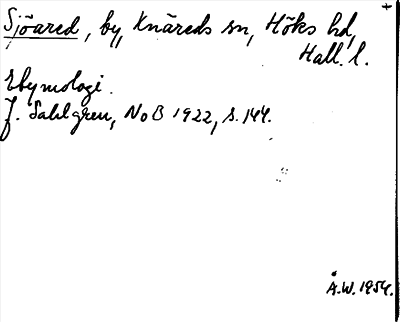 Sjöared, by, Knäreds sn, Höks hd,
Hall. l.
Etymologi.
J. Sahlgren, NoB 1922, s. 144.
Å.W. 1954.